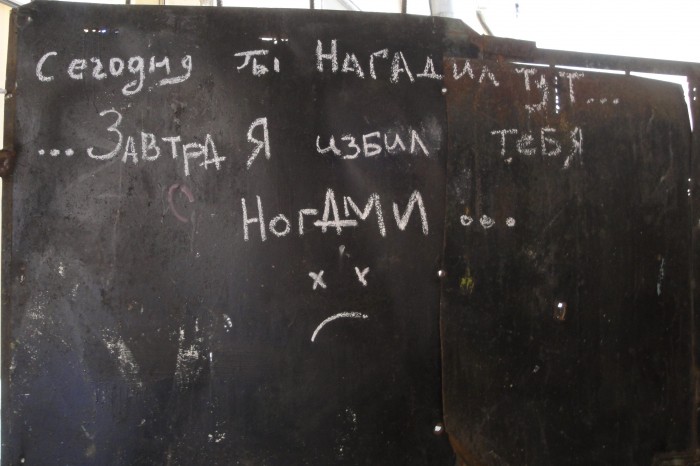 Сегодня ты НАГАДИЛ ТУТ...
...ЗАВТРА Я избил тебя
НогАМИ...